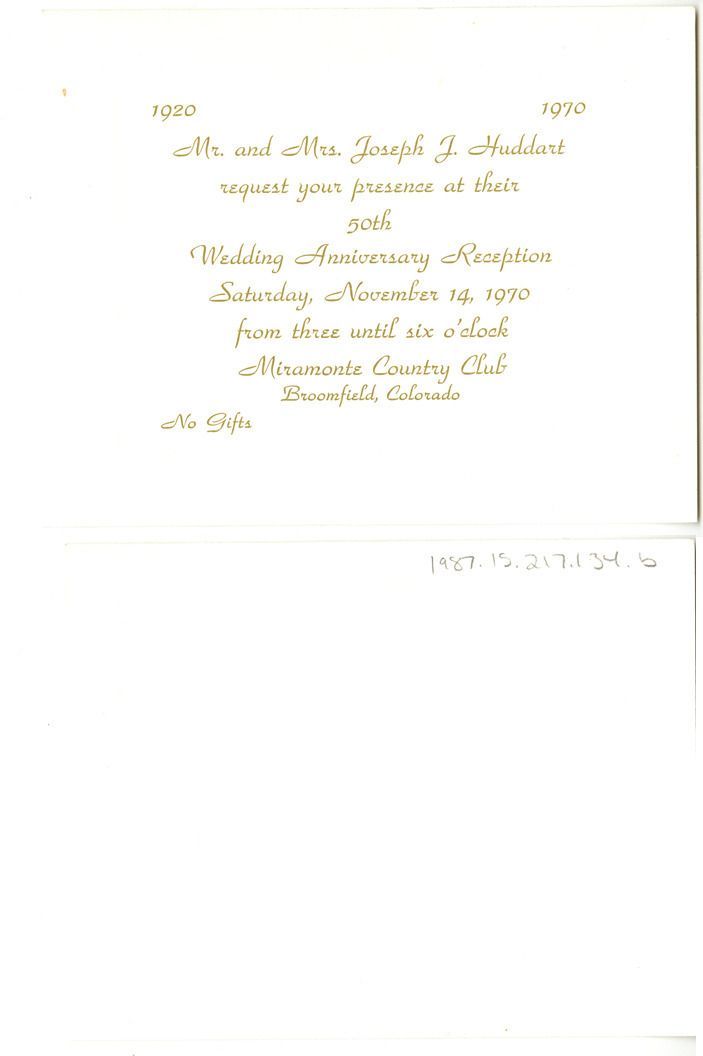 1920 1970
Mr. and Mrs. Joseph J. Huddart
request your presence at their
50th
Wedding Anniversary Reception
Saturday, November 14, 1970
from three until six o'clock
Miramonte Country Club
Broomfield, Colorado
No Gifts
1987.15.217.134.b